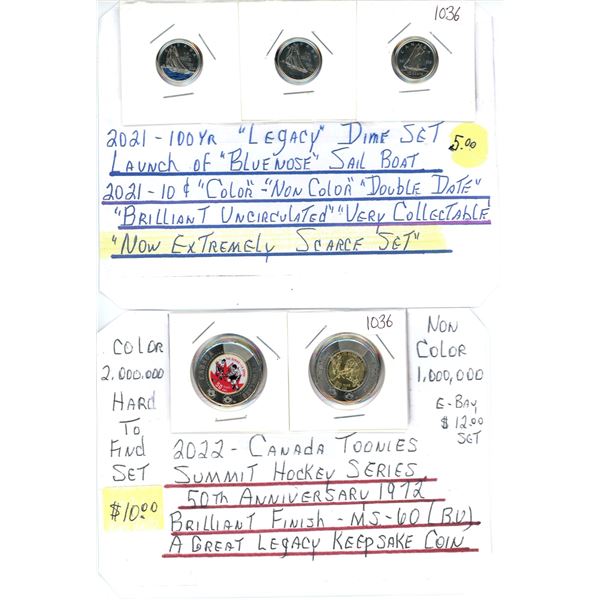 1036
2021-100YR "LEGACY" DIME SET
5.00
LAUNCH OF "BLUENOSE" SAIL BOAT
2021-10¢ "COLOR"-"NON COLOR" "DOUBLE DATE"
"BRILLIANT UNCIRCULATED" "VERY COLLECTABLE"
"NOW EXTREMELY SCARCE SET"
COLOR
2,000.000
HARD
TO
FIND
SET
$10.00
1036
NON
COLOR
1,000,000
E-BAY
$12.00
SET
2022-CANADA TOONIES
SUMMIT HOCKEY SERIES
50TH ANNIVERSARY 1972
BRILLIANT FINISH-MS-60 (B.U)
A GREAT LEGACY KEEPSAKE COIN